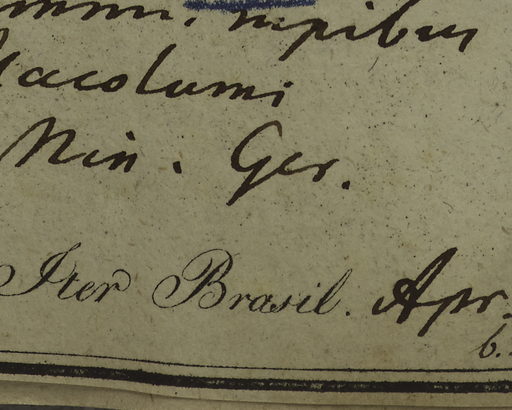 rupibus
Itacolumi
Min. Ger.
Iter Brasil. Apr.
b.